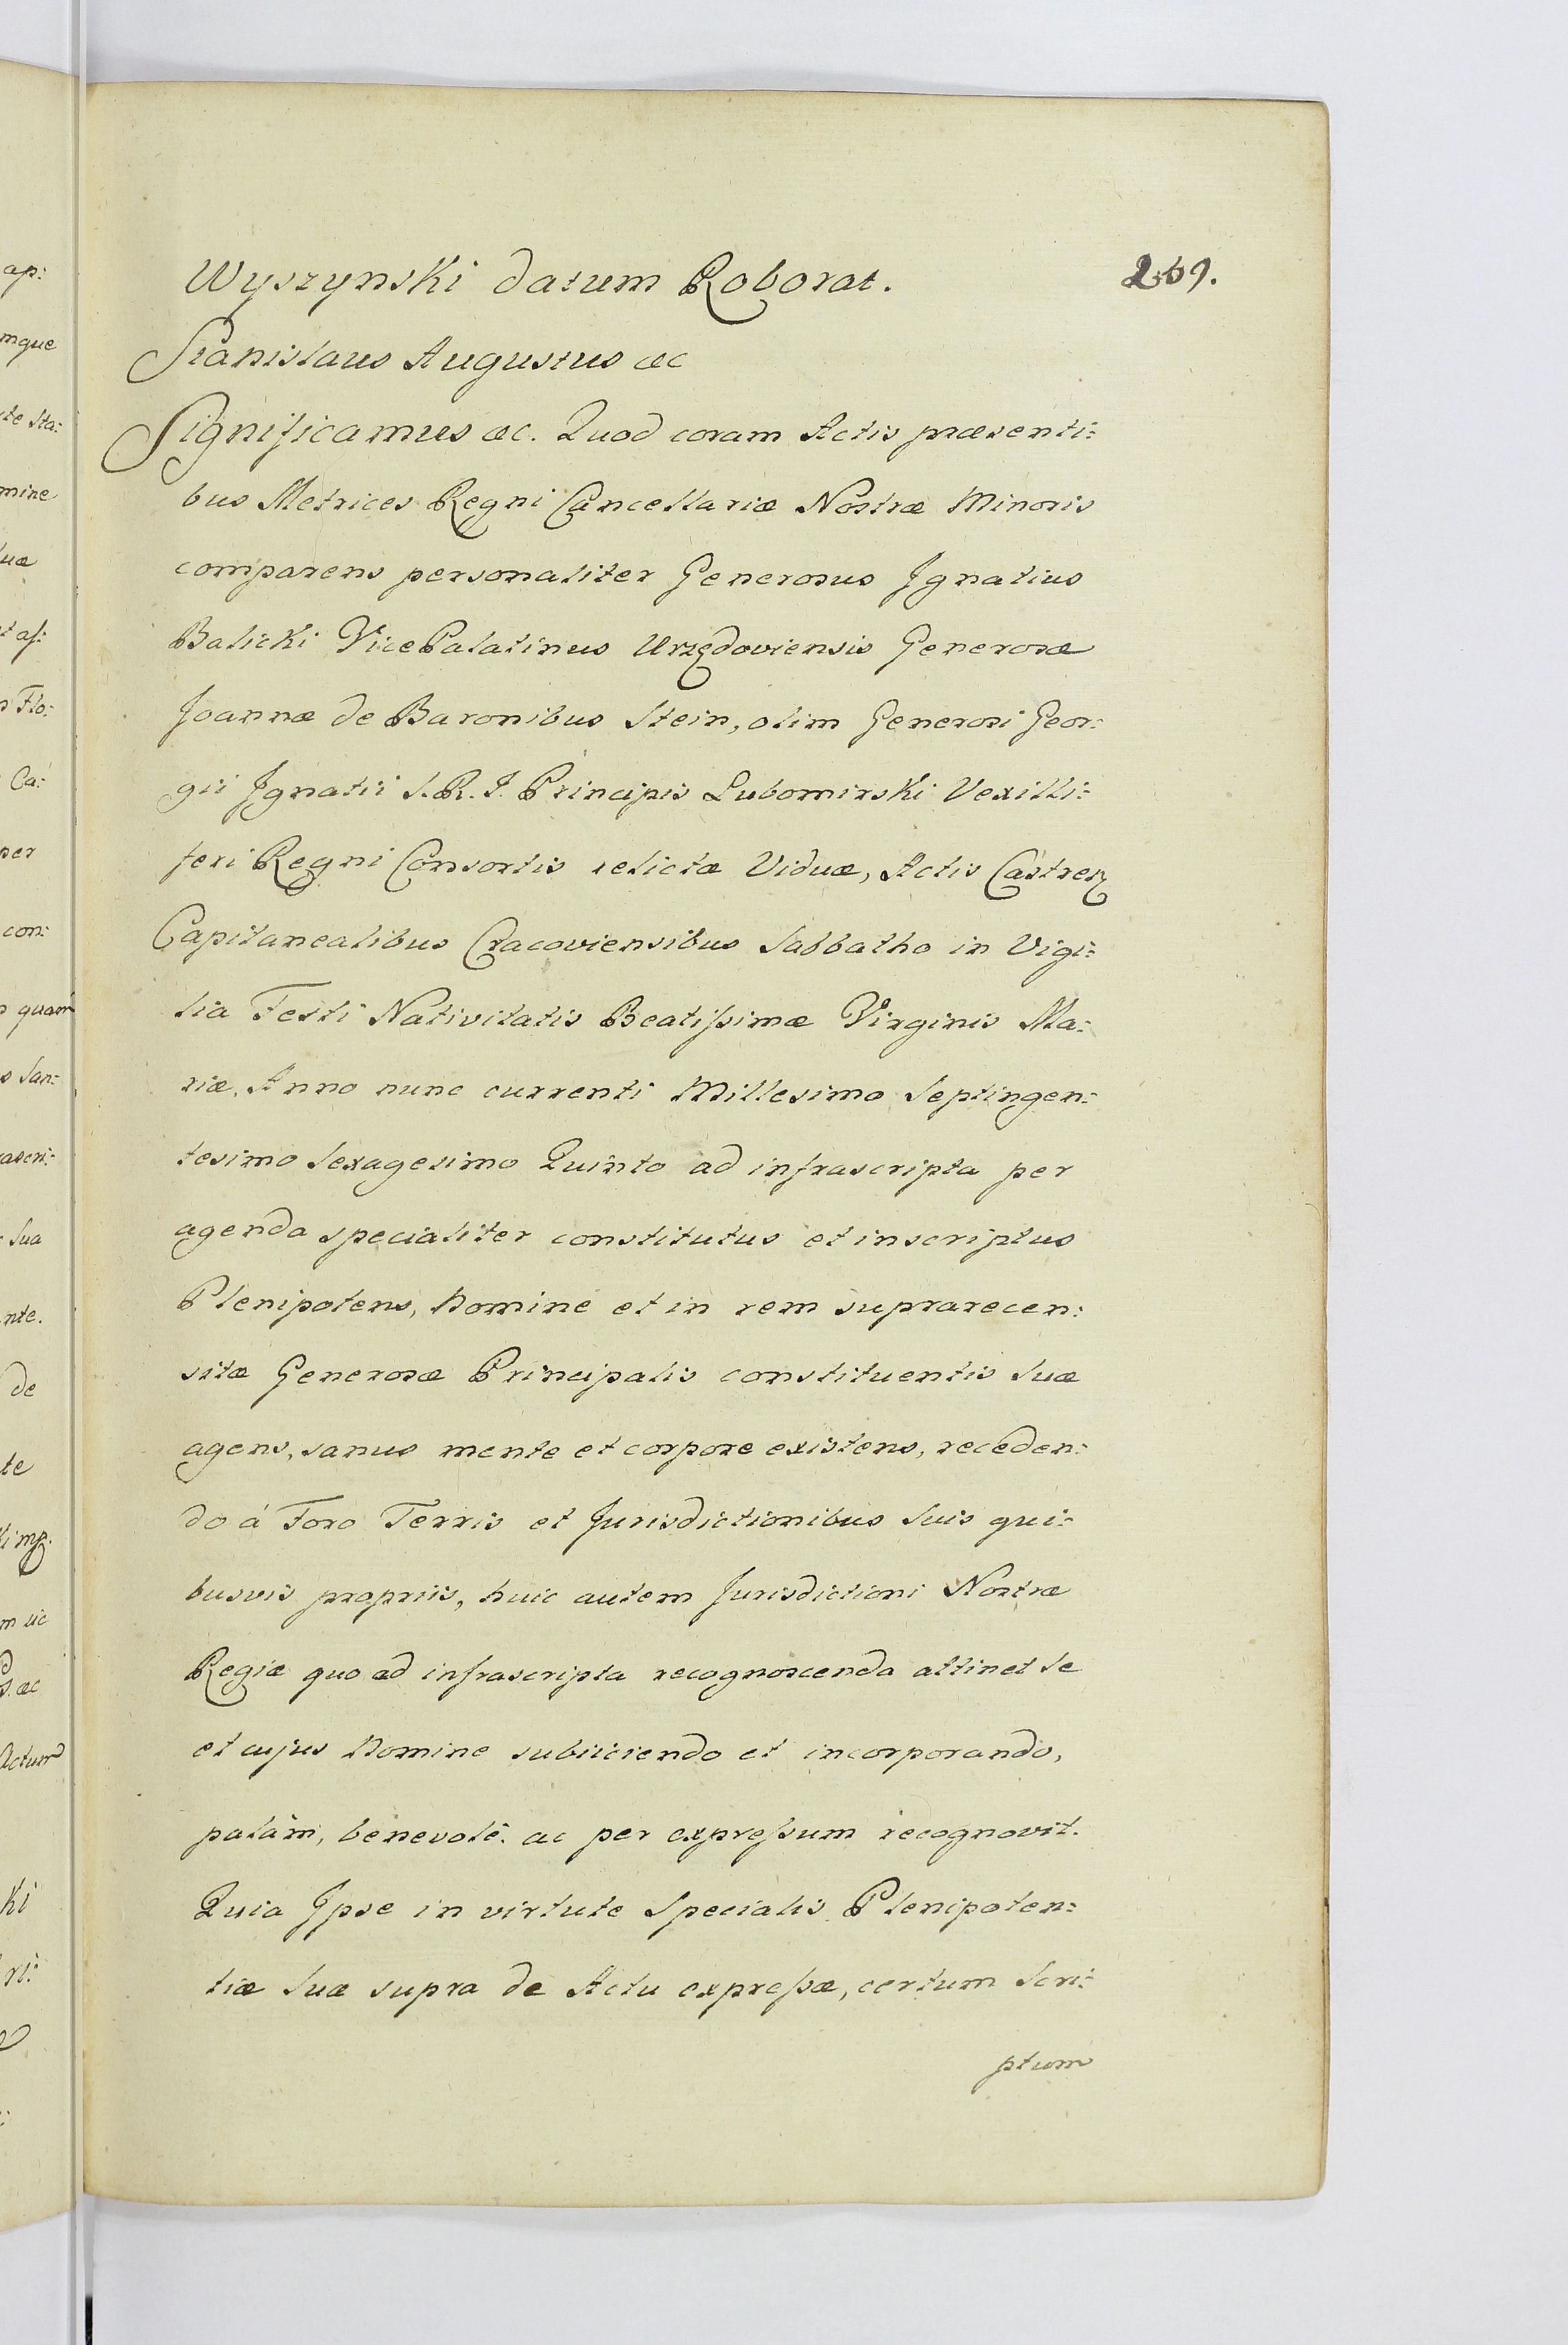 Wyszynski datum Roborat.
269.
Stanislaus Augustus æc
Significamus æc. Quod coram Actis præsenti:
bus Metrices Regni Cancellariæ Nostræ Minoris
comparens personaliter Generosus Jgnatius
Balicki Vice Palatinus Urzędoviensis Generosæ
Joannæ de Baronibus Stein, olim Generosi Geor:
gii Jgnatii S. R. J. Principis Lubomirski Vexilli:
feri Regni Consortis relictæ Viduæ, Actis Castren
Capitanealibus Cracoviensibus Sabbatho in Vigi:
lia Festi Nativitatis Beatissimæ Virginis Ma:
riæ, Anno nunc currenti Millesimo Septingen:
tesimo Sexagesimo Quinto ad infrascripta per
agenda specialiter constitutus et inscriptus
Plenipotens, Nomine et in rem suprarecen:
sitæ Generosæ Principalis constituentis Suæ
agens, sanus mente et corpore existens, receden:
do á Foro Terris et Jurisdictionibus Suis qui:
busvis propriis, huic autem Jurisdictioni Nostræ
Regiæ quo ad infrascripta recognoscenda attinet Se
et cujus Nomine subiiciendo et incorporando,
palàm, benevolè ac per expressum recognovit.
Quia Jpse in virtute Specialis Plenipoten:
tiæ Suæ supra de Actu expressæ, certum Scri:
ptum